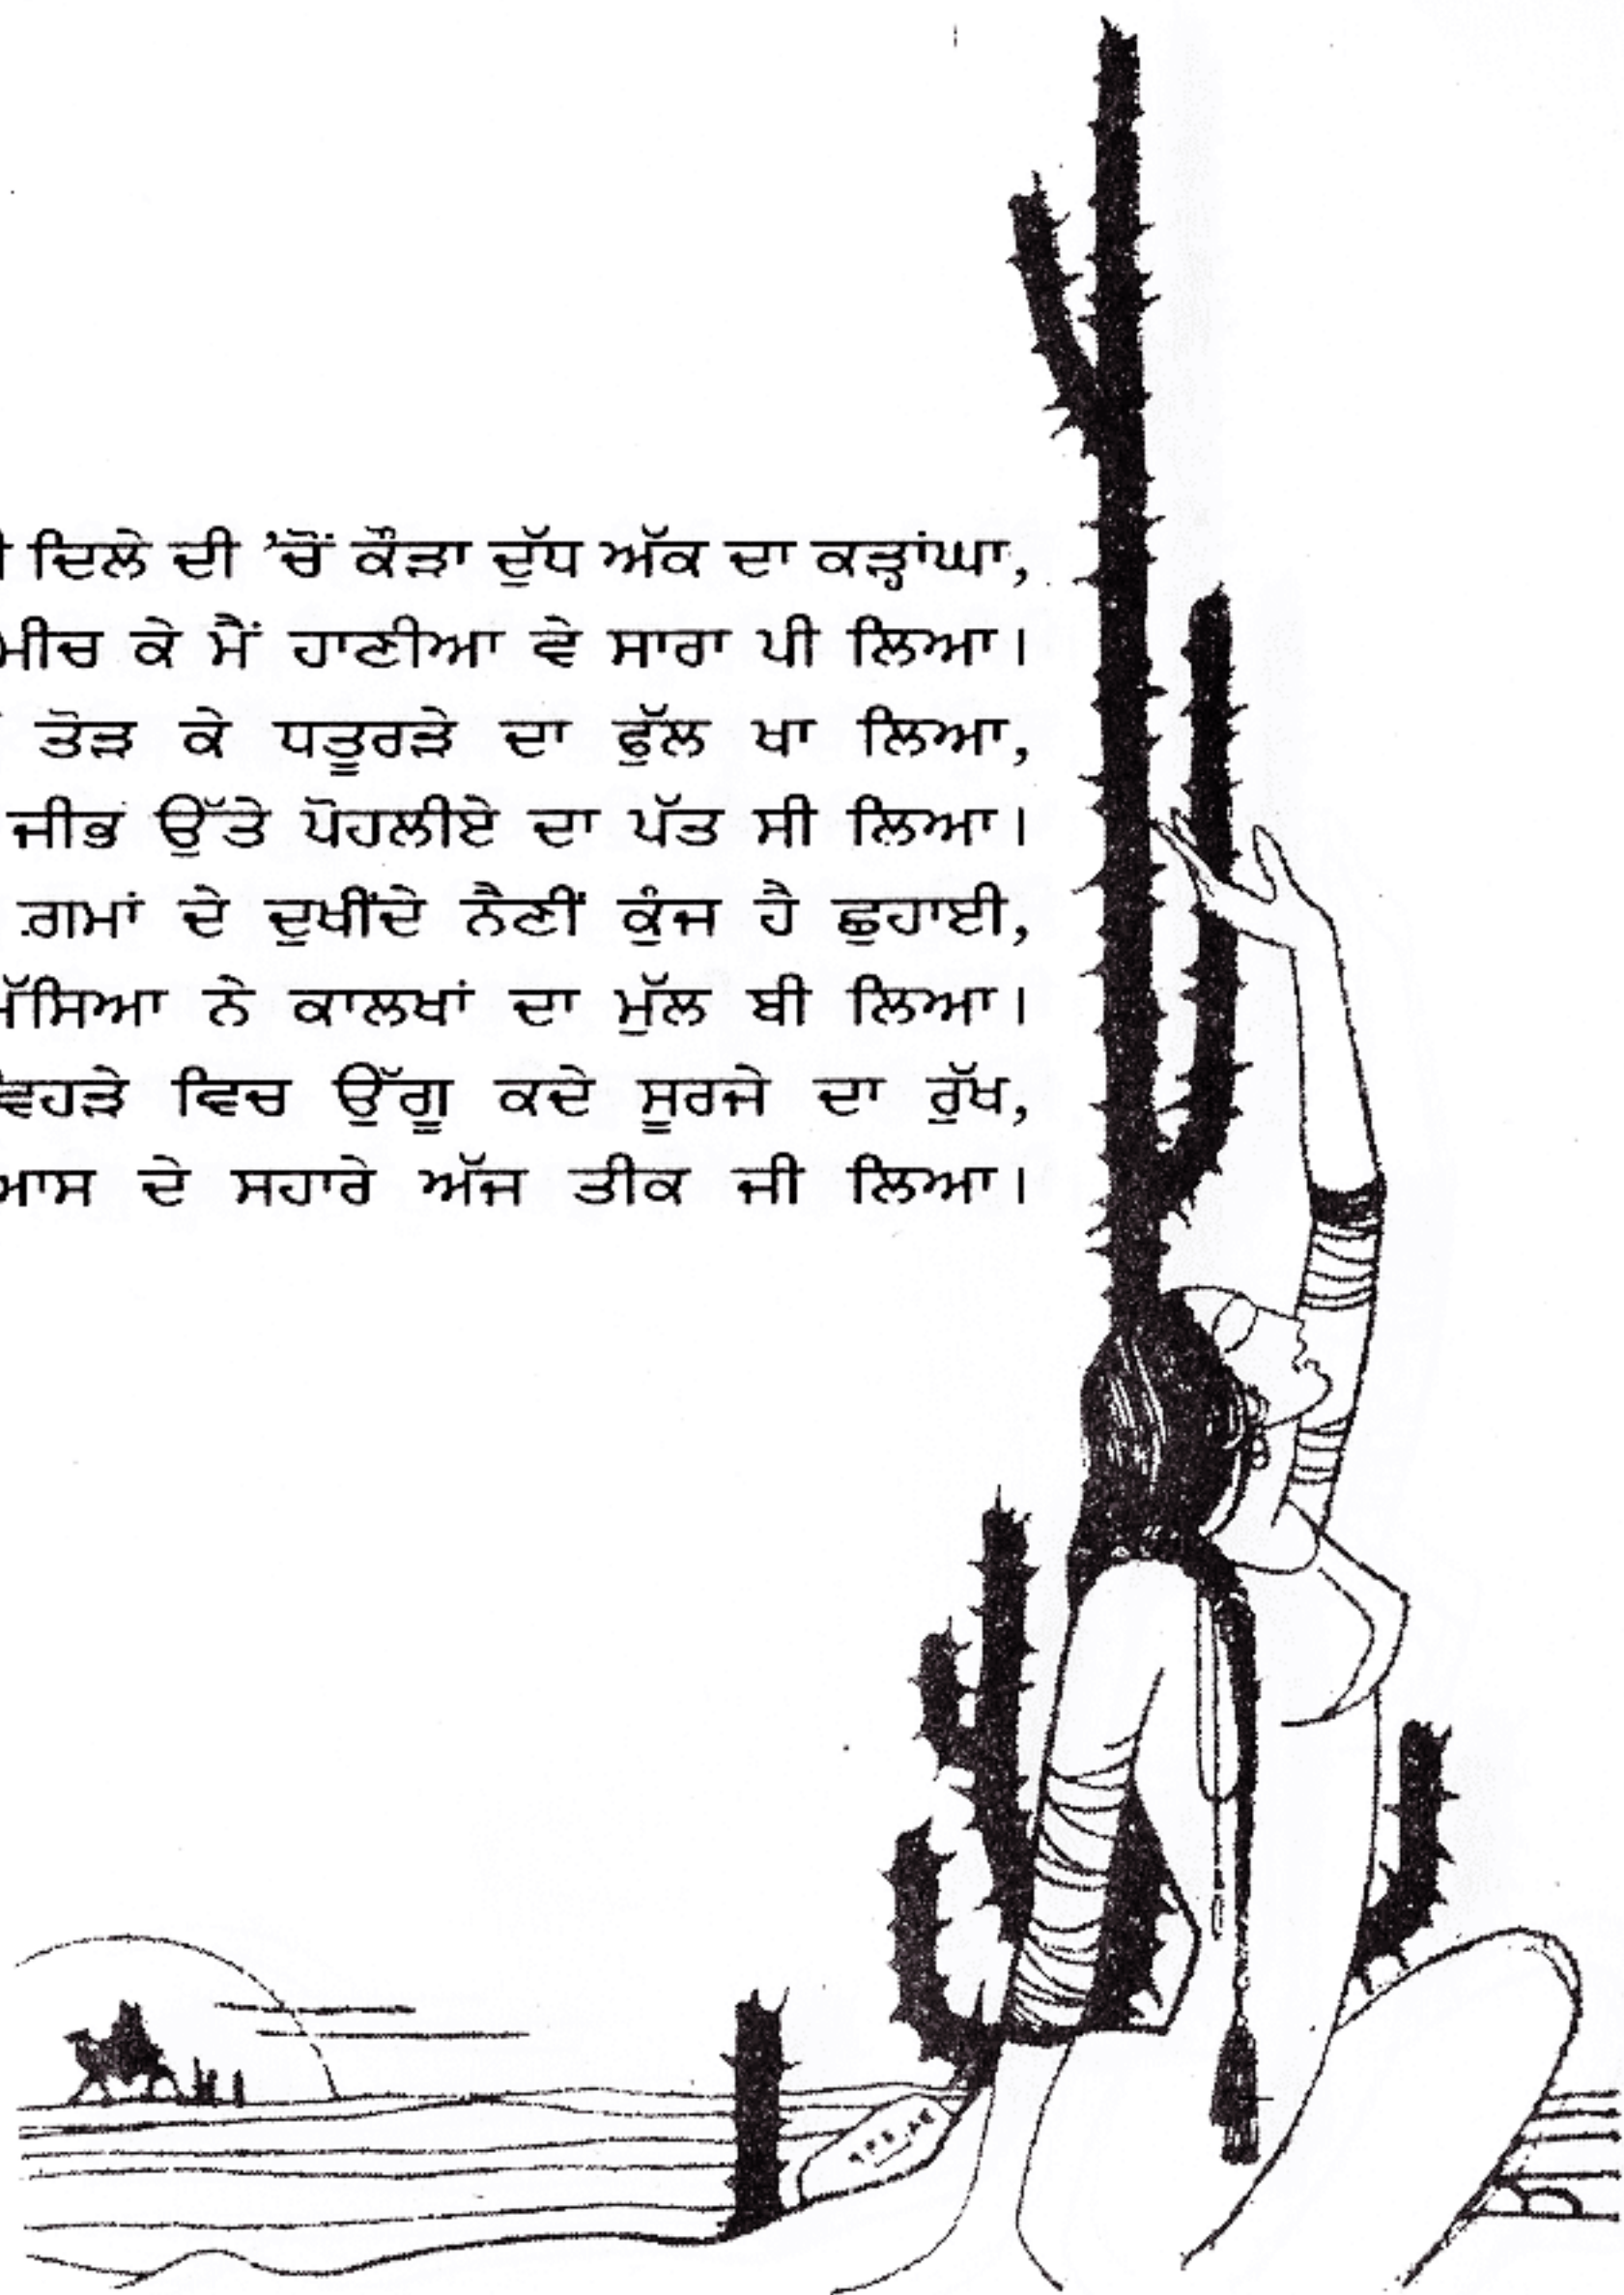 ਦਿਲੇ ਦੀ ’ਚੋਂ ਕੌੜਾ ਦੁੱਧ ਅੱਕ ਦਾ ਕੜ੍ਹਾਂਘਾ,
ਮੀਚ ਕੇ ਮੈਂ ਹਾਣੀਆ ਵੇ ਸਾਰਾ ਪੀ ਲਿਆ।
ਤੋੜ ਕੇ ਧਤੂਰੜੇ ਦਾ ਫੁੱਲ ਖਾ ਲਿਆ,
ਜੀਭ ਉੱਤੇ ਪੋਹਲੀਏ ਦਾ ਪੱਤ ਸੀ ਲਿਆ।
ਗ਼ਮਾਂ ਦੇ ਦੁਖੀਂਦੇ ਨੈਣੀਂ ਕੁੰਜ ਹੈ ਛੁਹਾਈ,
ਮੱਸਿਆ ਨੇ ਕਾਲਖਾਂ ਦਾ ਮੁੱਲ ਬੀ ਲਿਆ।
ਵਿਹੜੇ ਵਿਚ ਉੱਗੂ ਕਦੇ ਸੂਰਜੇ ਦਾ ਰੁੱਖ,
ਆਸ ਦੇ ਸਹਾਰੇ ਅੱਜ ਤੀਕ ਜੀ ਲਿਆ।